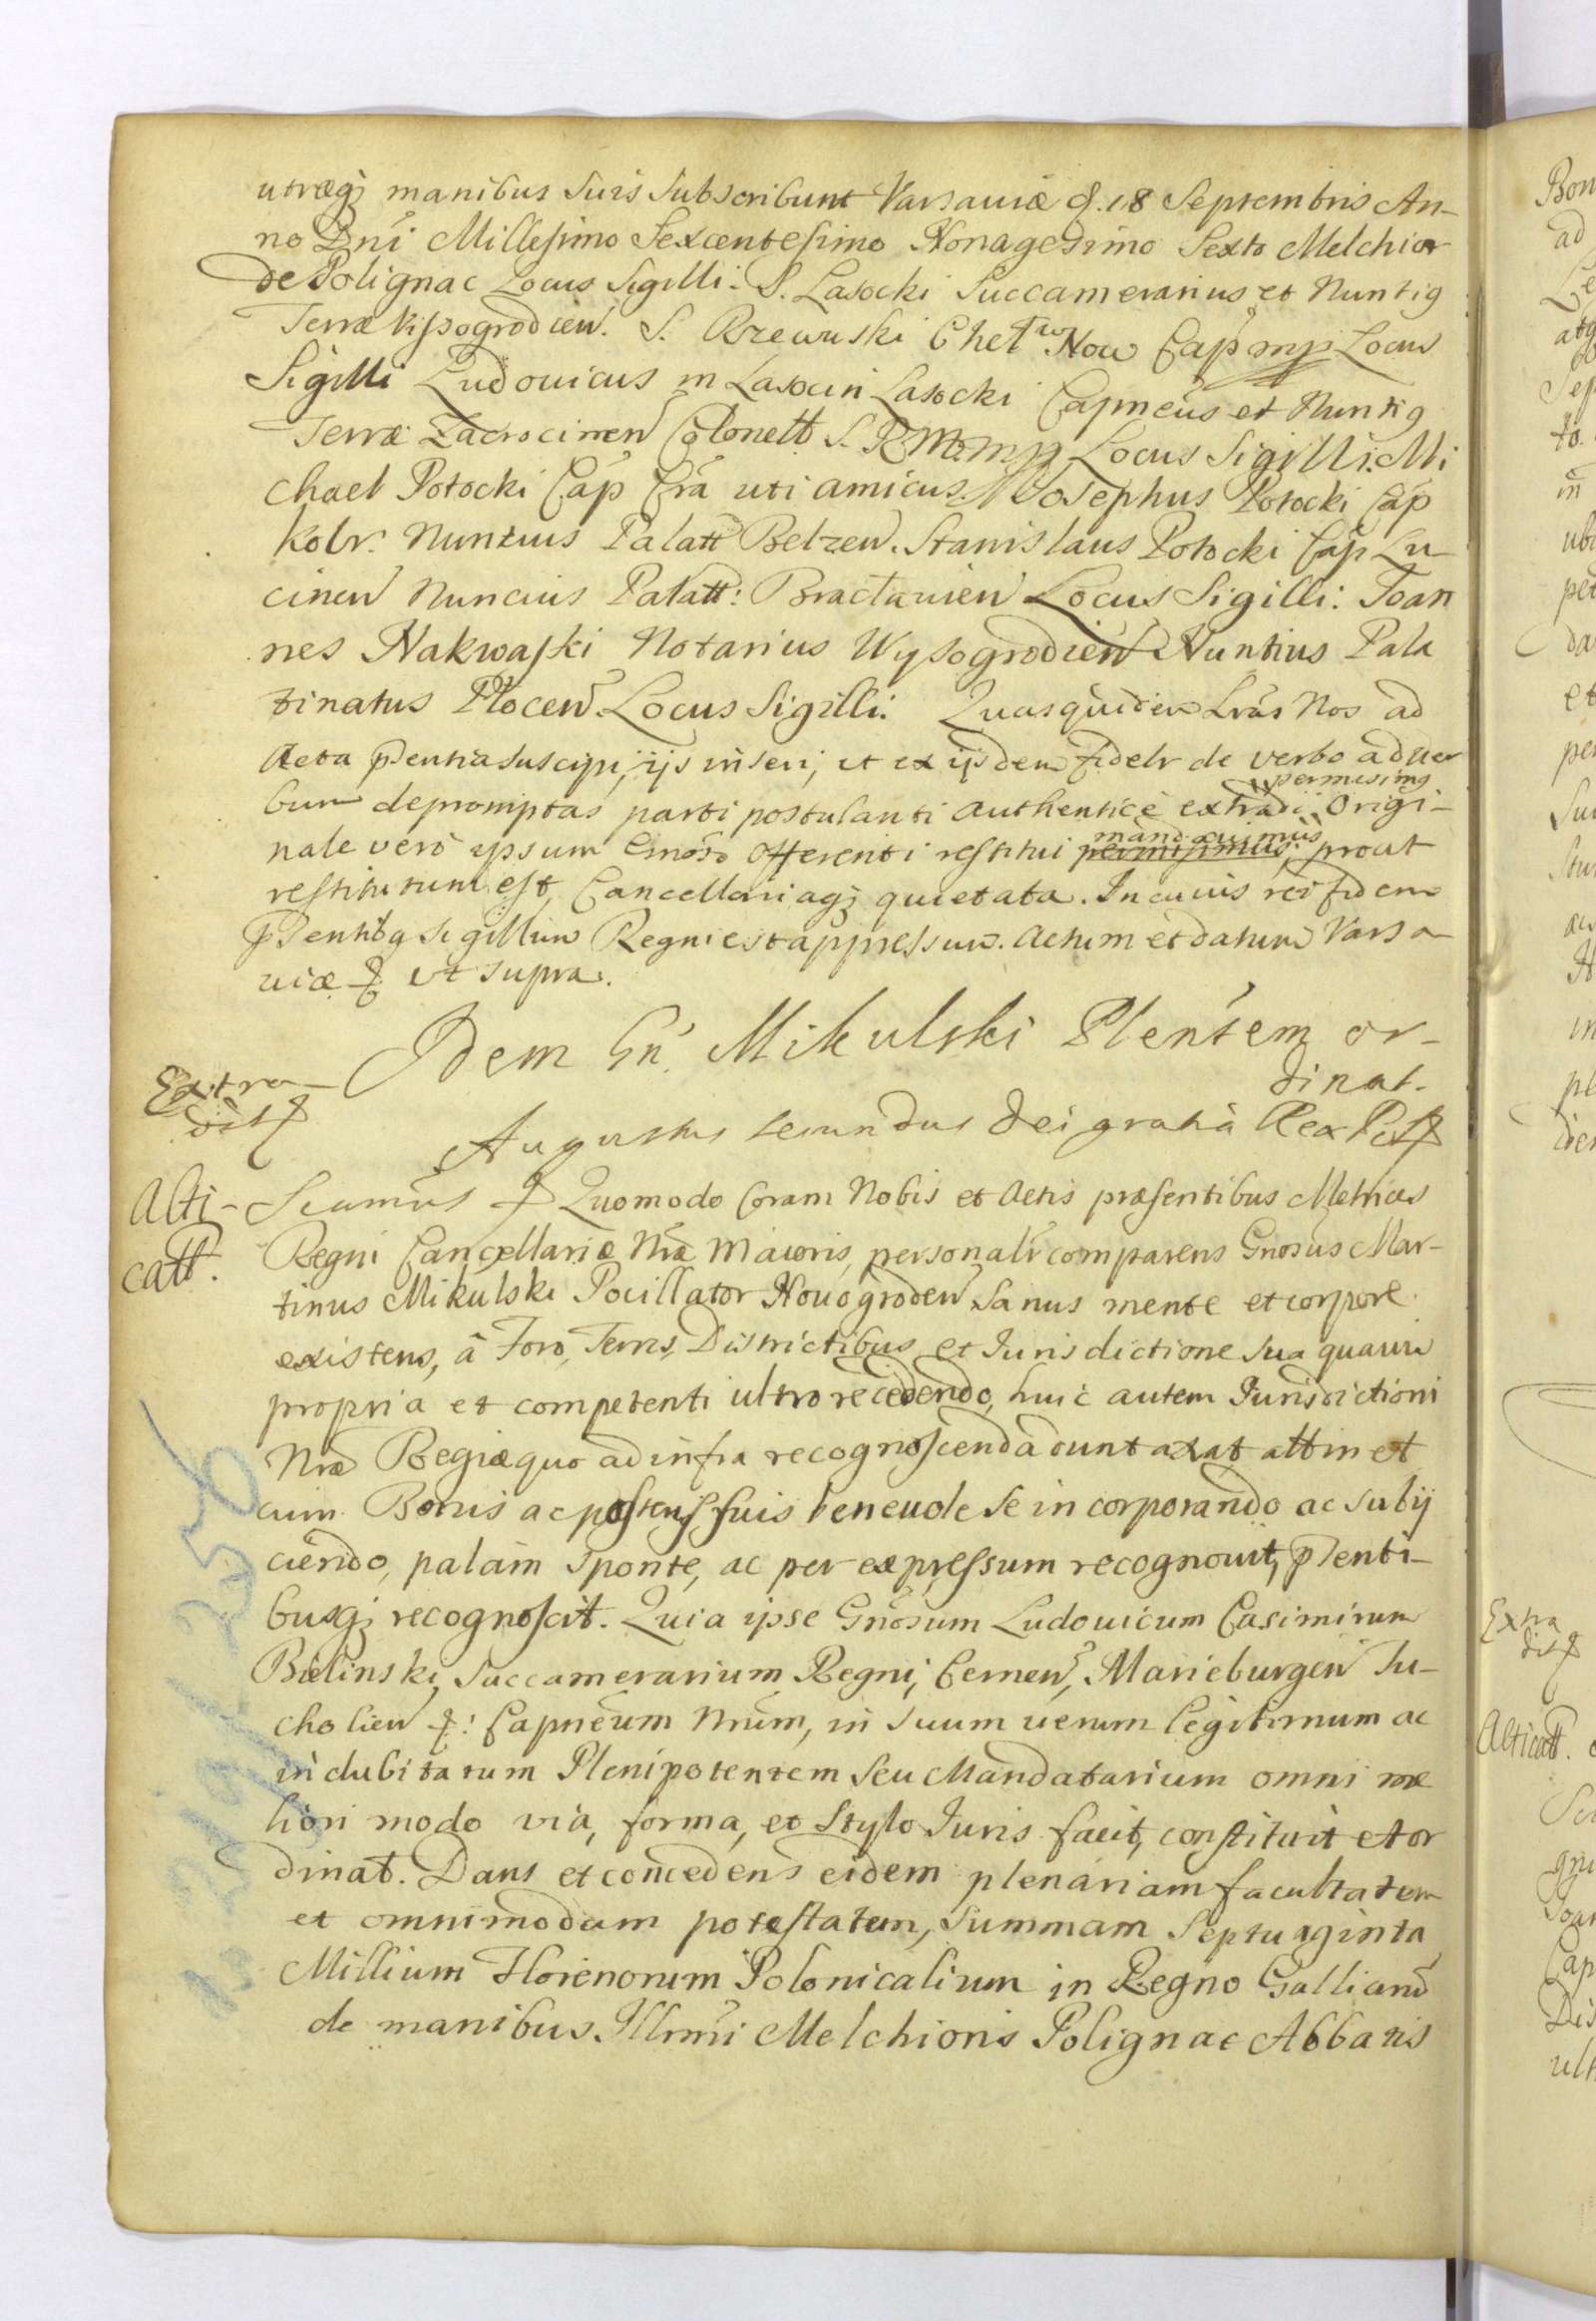 utræq3 manibus Suis Subscribunt Varsaviæ d. 18 Septembris An-
no Dni Millesimo Sexcentesimo Nonagesimo Sexto Melchior
de Polignac Locus Sigilli. S. Lasocki Succamerarius et Nuntig
Terræ Vissogrodien. S. Rzewuski Chel Now Cap mp Locus
Sigilli Ludovicus in Lasocin Lasocki Capneus et Nuntig
Terræ Zacrocimen Colonell S. R. M. mp Locus Sigilli. Mi
chael Potocki Cap Cra uti amicus. Josephus Potocki Cap
Kolr. Nuntius Palatt Belzen. Stanislaus Potocki Cap Lu-
cinen Nuncius Palatt: Braclavien Locus Sigilli: Joan
nes Nakwaski Notarius Wysogrodien Nuntius Pala
tinatus Plocen. Locus Sigilli. Quasquidem Lras Nos ad
Acta pntia suscipi, ijs inseri, et ex ijsdem fidelr de verbo ad ver
bum depromptas parti postulanti authenticè extradi permisimg Origi-
nale verò ipsum Gnoso Offerenti restitui permisimus mandavimus, prout
restitutum est, Cancellariaq3 quietata. In cuius rei fidem
pntibg Sigillum Regni est appressum. Actum et datum Varsa-
viæ ut supra.
Idem Gn. Mikulski Plentem or-
dinat.
Extra-
dit
Augustus Secundus Dei gratià Rex Pol
Alti-
catt.
Scimus Quomodo Coram Nobis et Actis præsentibus Metrices
Regni Cancellariæ Nræ Maioris, personalr comparens Gnosus Mar-
tinus Mikulski Pocillator Novogroden Sanus mente et corpore
existens, à Foro, Terris, Districtibus et Jurisdictione sua quavis
propria et competenti ultro recedendo, huic autem Jurisdictioni
Nræ Regiæ quo ad infra recognoscenda duntaxat attinet
cum Bonis ac postens suis benevole se in corporando ac subij
ciendo, palam sponte, ac per expressum recognovit, pnti-
busq3 recognoscit. Quia ipse Gnosum Ludovicum Casimirum
Bielinski, Succamerarium Regni, Cernen, Marieburgen Tu-
cholien: Capneum Nrum, in suum verum legitimum ac
indubitatum Plenipotentem seu Mandatarium omni me
liori modo via, forma, et Stylo Juris facit, constituit et or
dinat. Dans et concedens eidem plenariam facultatem
et omnimodam potestatem, Summam Septuaginta
Millium Florenorum Polonicalium in Regno Gallia
de manibus Illmi Melchioris Polignac Abbatis